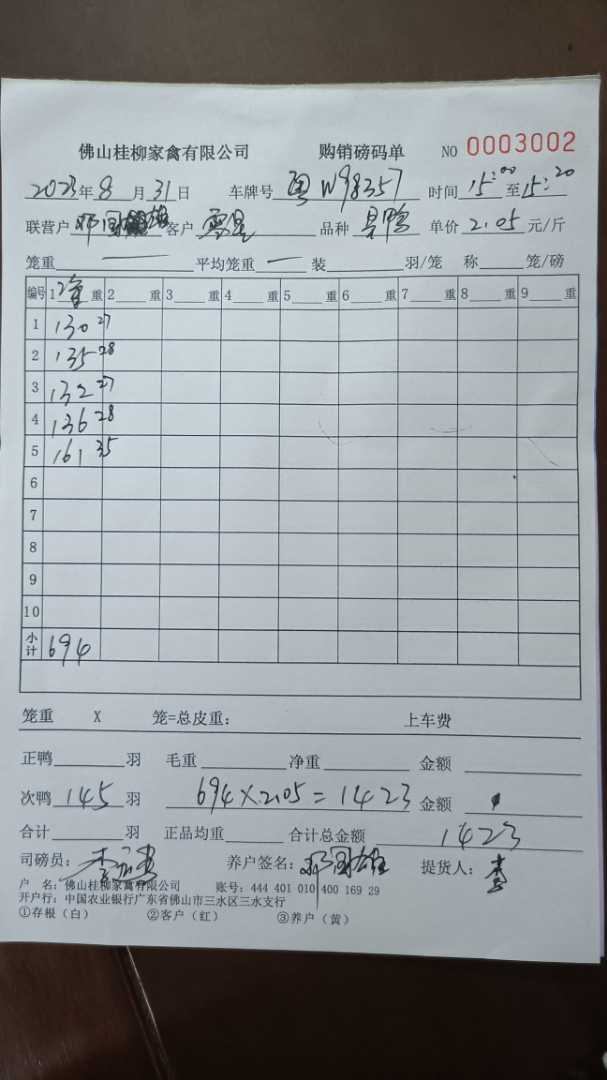 佛山桂柳家禽有限公司 购销磅码单 NO 0003002
2023年8月31日 车牌号 粤W98357 时间 15:00 至 15:20
联营户 邓国雄 客户 品种 单价 2.05 元/斤
笼重 一 平均笼重 一 装 羽/笼 称 笼/磅
编号 1 重 2 重 3 重 4 重 5 重 6 重 7 重 8 重 9 重
1 130 27
2 135 28
3 132 27
4 136 28
5 161 35
6
7
8
9
10
小计 694
笼重 X 笼=总皮重: 上车费
正鸭 羽 毛重 净重 金额
次鸭 145 羽 694×2.05=1423 金额
合计 羽 正品均重 合计总金额 1423
司磅员: 养户签名: 邓国雄 提货人: 李
户 名: 佛山桂柳家禽有限公司 账号: 444 401 010 400 169 29
开户行: 中国农业银行广东省佛山市三水区三水支行
①存根(白) ②客户(红) ③养户(黄)